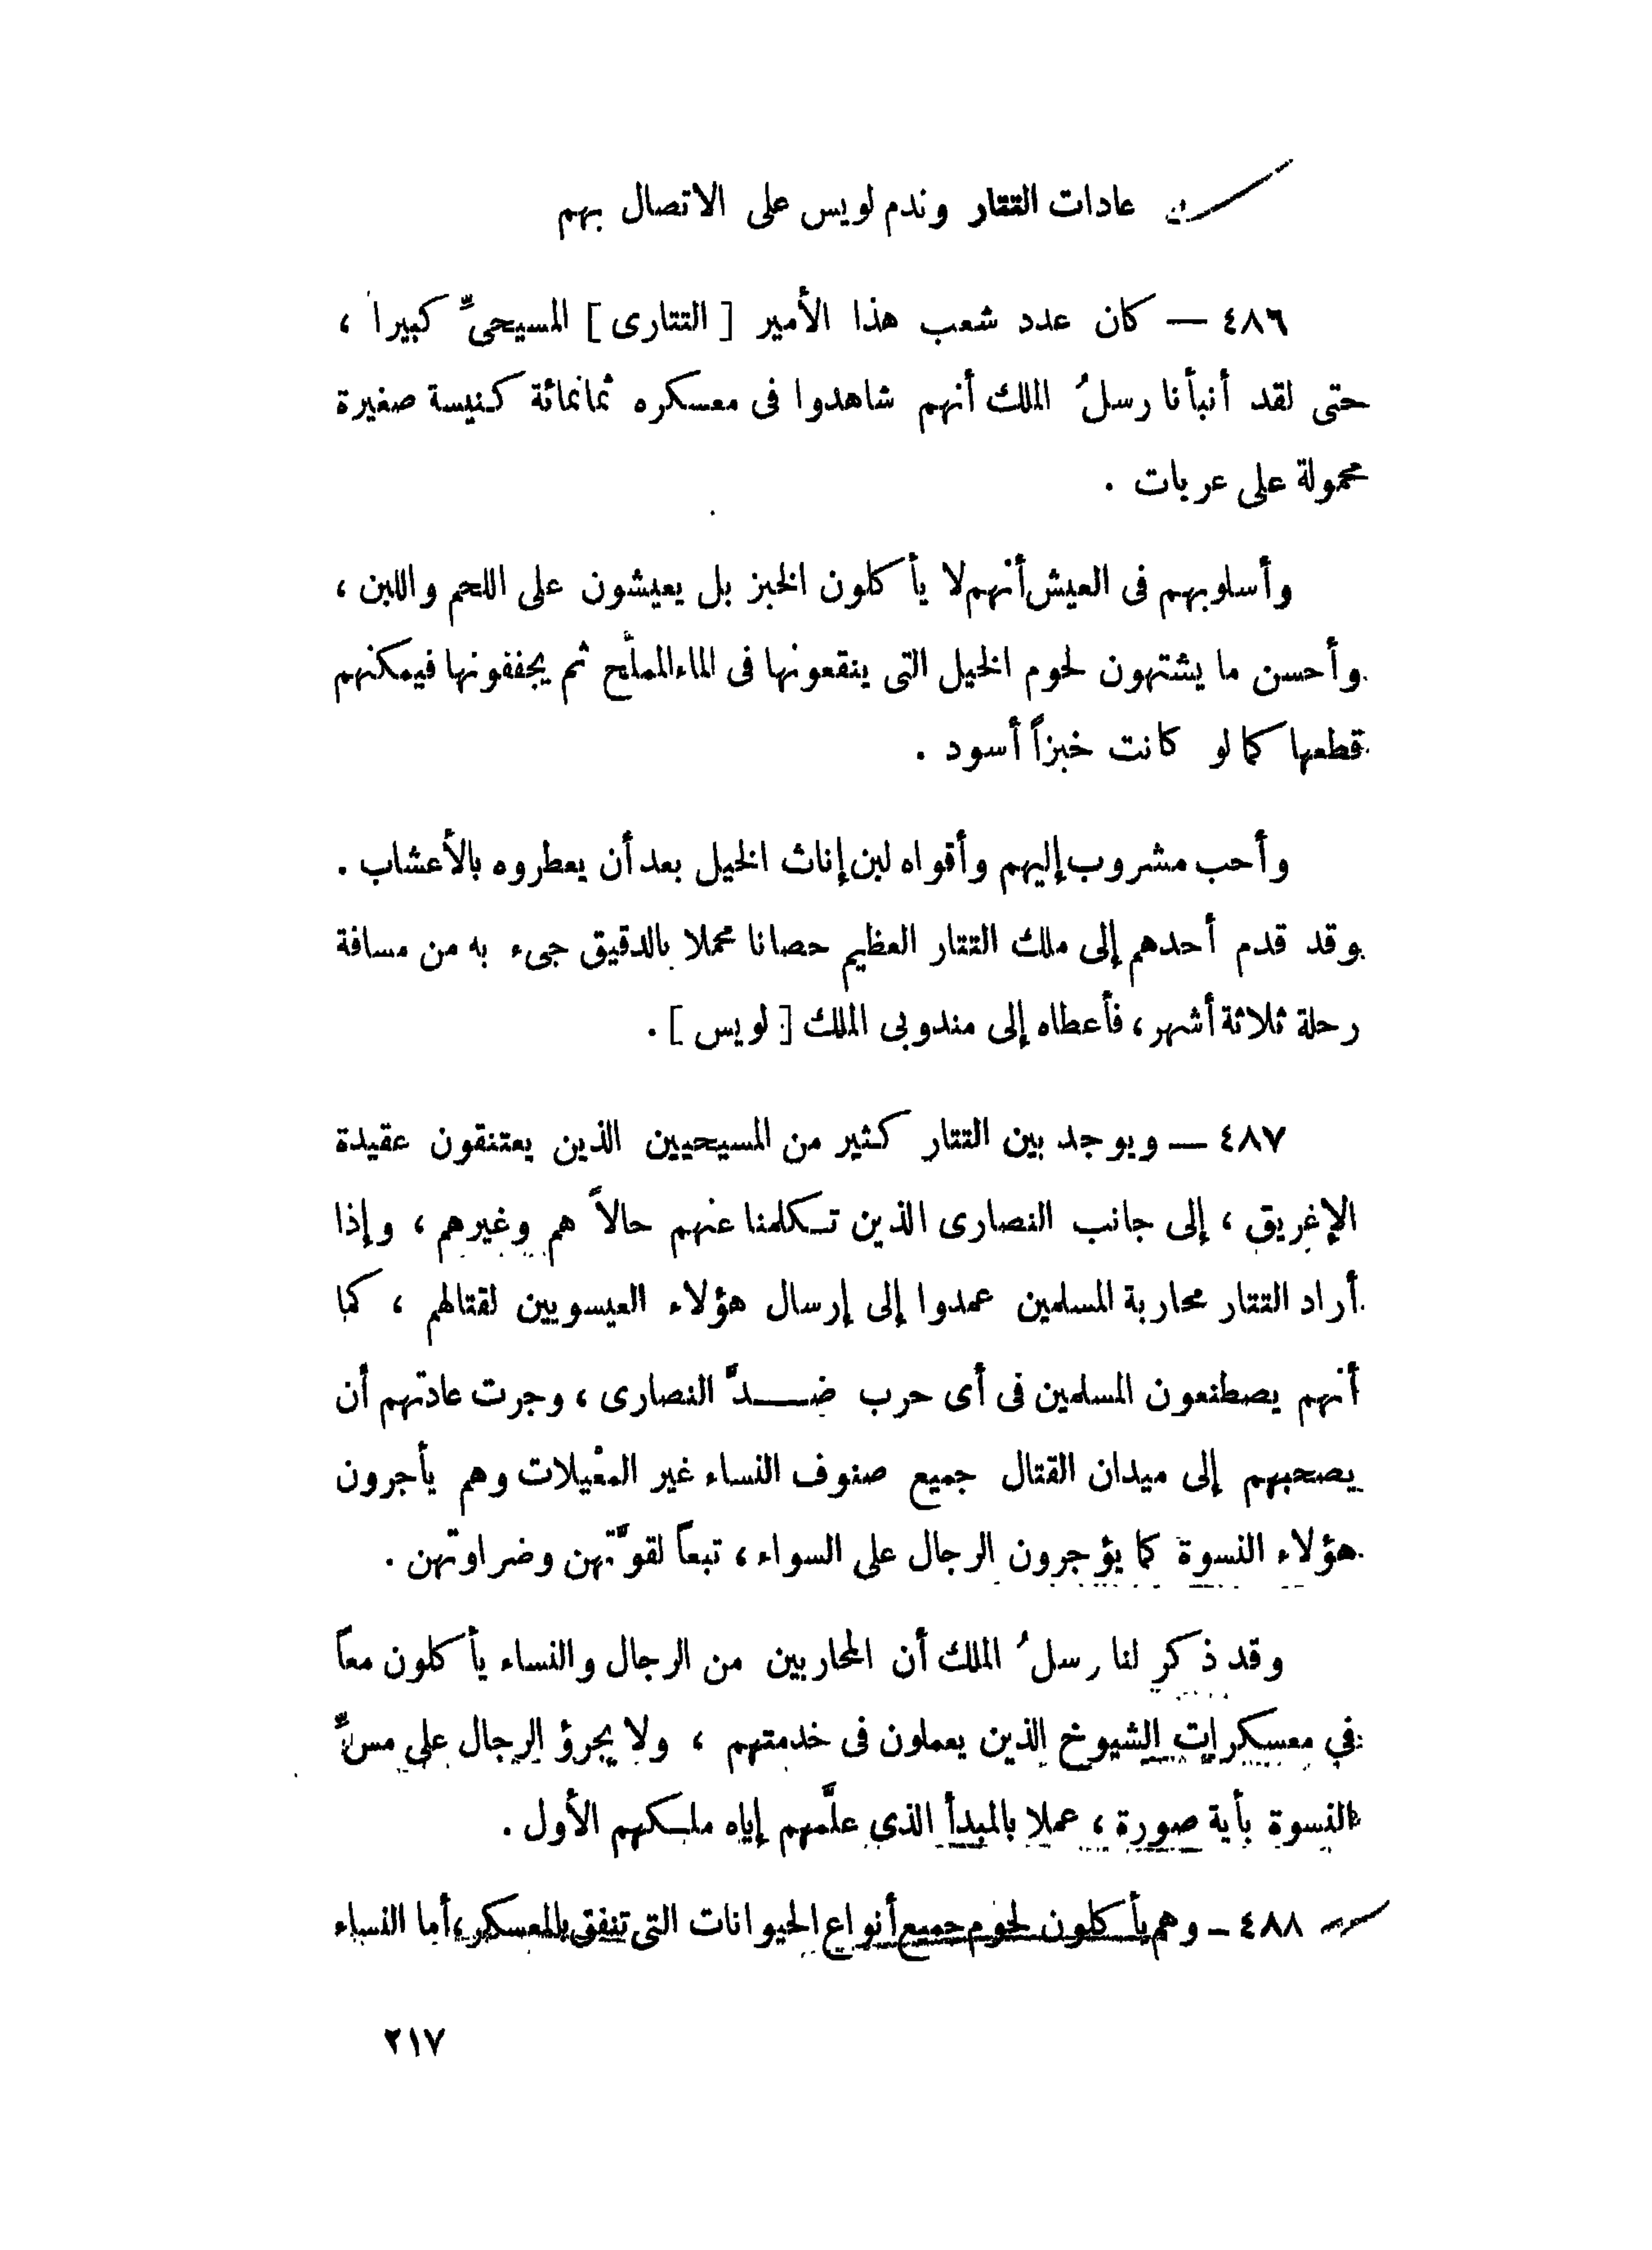 عادات التتار وندم لويس على الاتصال بهم
٤٨٦ — كان عدد شعب هذا الأمير [ التتارى ] المسيحىِّ كبيرا ،
حتى لقد أنبأنا رسلُ الملك أنهم شاهدوا فى معسكره ثمانمائة كنيسة صغيرة
محمولة على عربات .
وأسلوبهم فى العيش أنهم لا يأكلون الخبز بل يعيشون على اللحم واللبن ،
وأحسن ما يشتهون لحوم الخيل التى ينقعونها فى الماء المملّح ثم يجففونها فيمكنهم
قطعها كما لو كانت خبزاً أسود .
وأحب مشروب إليهم وأقواه لبن إناث الخيل بعد أن يعطروه بالأعشاب .
وقد قدم أحدهم إلى ملك التتار العظيم حصانا محملا بالدقيق جىء به من مسافة
رحلة ثلاثة أشهر ، فأعطاه إلى مندوبى الملك [ لويس ] .
٤٨٧ — ويوجد بين التتار كثير من المسيحيين الذين يعتنقون عقيدة
الإغريق ، إلى جانب النصارى الذين تكلمنا عنهم حالاً هم وغيرهم ، وإذا
أراد التتار محاربة المسلمين عمدوا إلى إرسال هؤلاء العيسويين لقتالهم ، كما
أنهم يصطنعون المسلمين فى أى حرب ضــدَّ النصارى ، وجرت عادتهم أن
يصحبهم إلى ميدان القتال جميع صنوف النساء غير المغْيلات وهم يأجرون
هؤلاء النسوة كما يؤجرون الرجال على السواء ، تبعاً لقوَّتهن وضراوتهن .
وقد ذكر لنا رسلُ الملك أن المحاربين من الرجال والنساء يأكلون معاً
في معسكرات الشيوخ الذين يعملون فى خدمتهم ، ولا يجرؤ الرجال على مسِّ
النسوة بأية صورة ، عملا بالمبدأ الذى علَّمهم إياه ملكهم الأول .
٤٨٨ – وهم يأكلون لحوم جميع أنواع الحيوانات التى تنفق بالمعسكر ، أما النساء
٢١٧